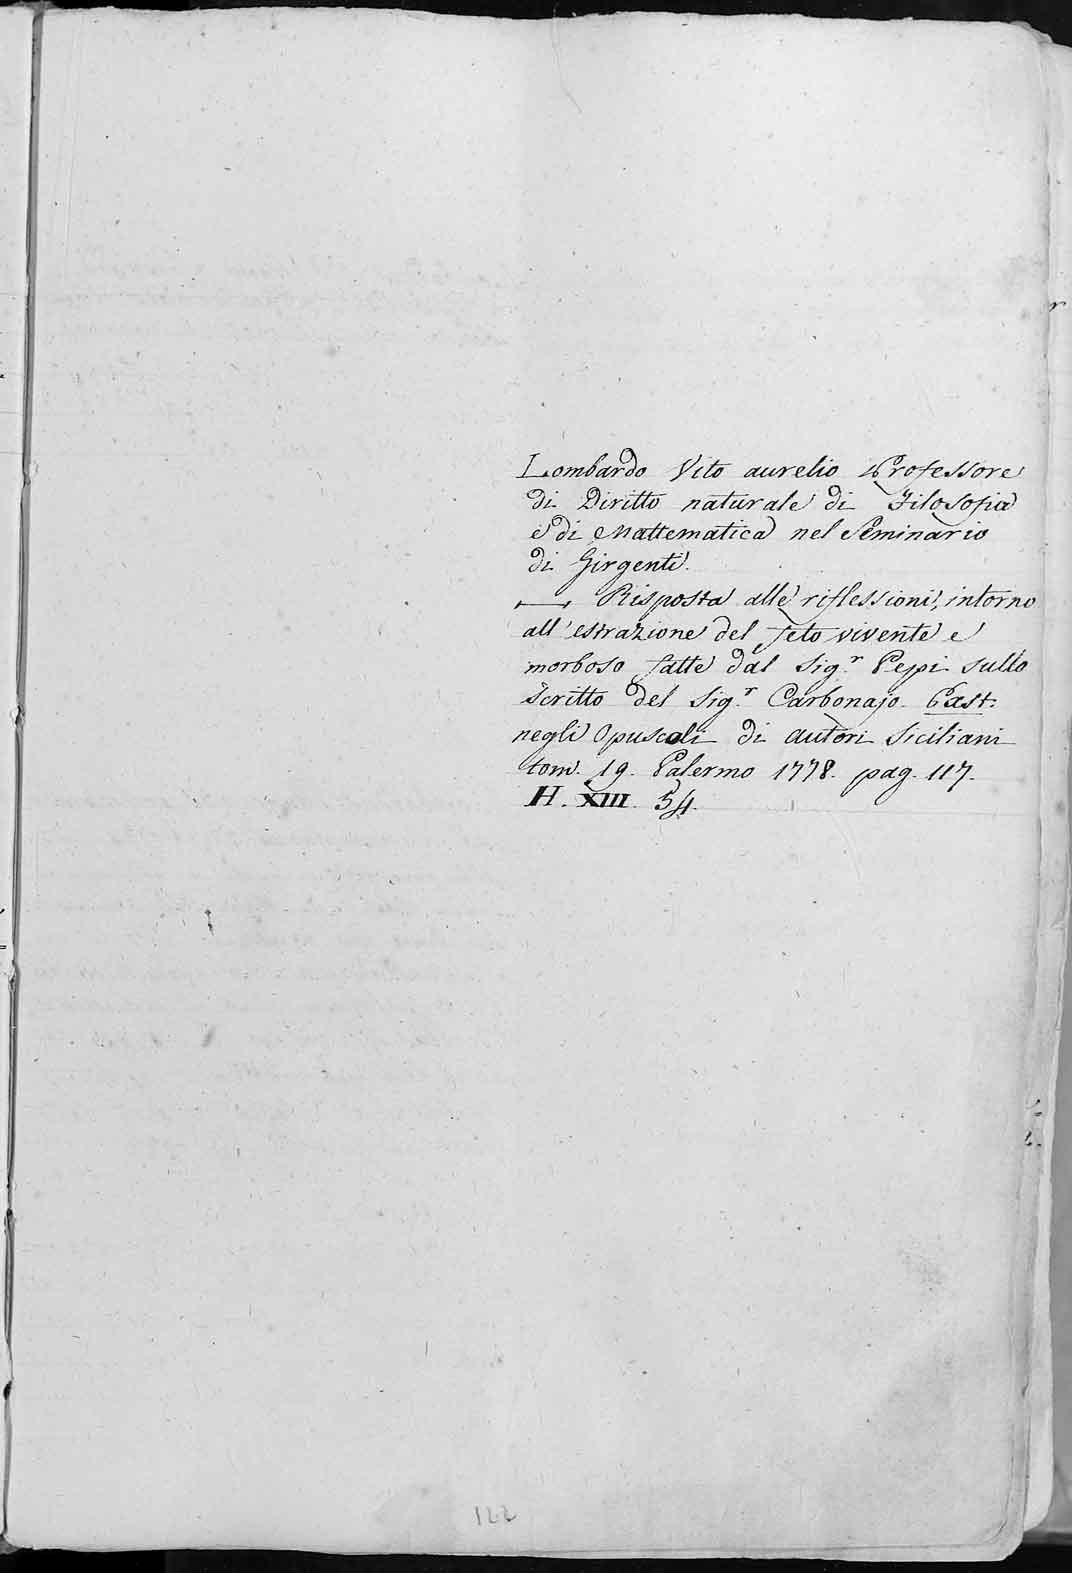 Lombardo Vito aurelio Professore
di Diritto naturale di Filosofia
e di Mattematica nel Seminario
di Girgenti.
— Risposta alle riflessioni, intorno
all'estrazione del feto vivente e
morboso fatte dal Sig.r Pepi sullo
Scritto del Sig.r Carbonajo. Exst:
negli Opuscoli di autori Siciliani
tom. 19. Palermo 1778. pag. 117.
H. XIII. 54.
122